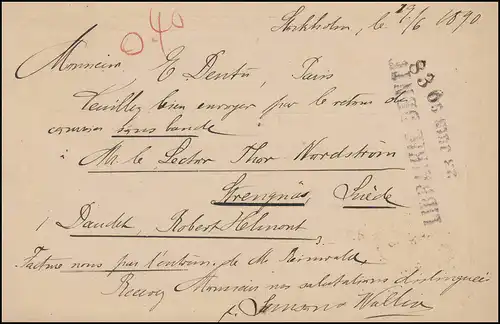 0.40
Stockholm, le 19/6 1890
Monsieur E Dentu, Paris
Veuillez bien envoyer par le retour du
courrier sous bande
à M. le Lector Thor Nordström
Strengnäs, Suède
1 Daudet, Robert Helmont 3.-
Facture nous par l'entrem. de M. Reinwald.
Recevez Monsieur nos salutations distinguées
Samson & Wallin